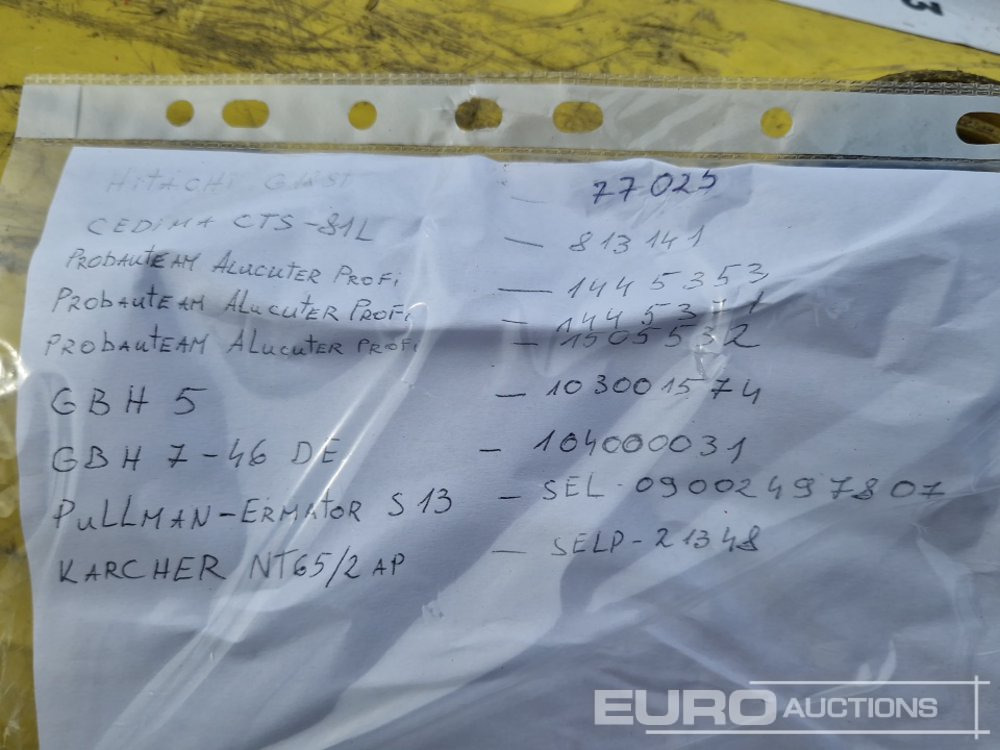 HITACHI — 77025
CEDIMA CTS-81L — 813141
PROBAUTEAM ALUCUTER PROFI — 1445353
PROBAUTEAM ALUCUTER PROFI — 1445371
PROBAUTEAM ALUCUTER PROFI — 1505532
GBH 5 — 103001574
GBH 7-46 DE — 104000031
PULLMAN-ERMATOR S 13 — SEL-09002497807
KARCHER NT65/2 AP — SELP-21348
EURO AUCTIONS